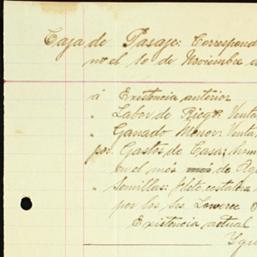 Caja de Pasaje: Correspond
no el 10 de Noviembre d
á Existencia anterior
" Labor de Riego: Venta
" Ganado Menor: Venta
por Gastos de Casa: hem
en el mes de Ag
" Semillas: flete
por los Sres
Existencia actual
Ygu